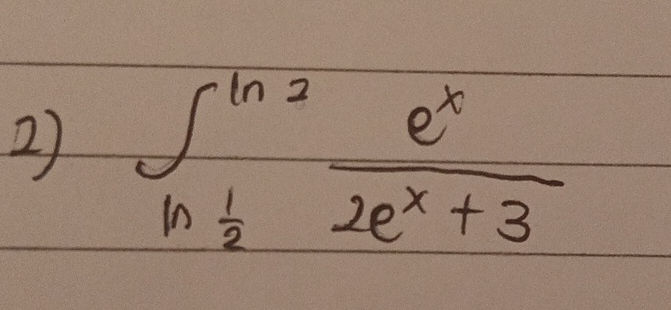 2) ∫_{ln 1/2}^{ln 2} e^x / (2e^x + 3)